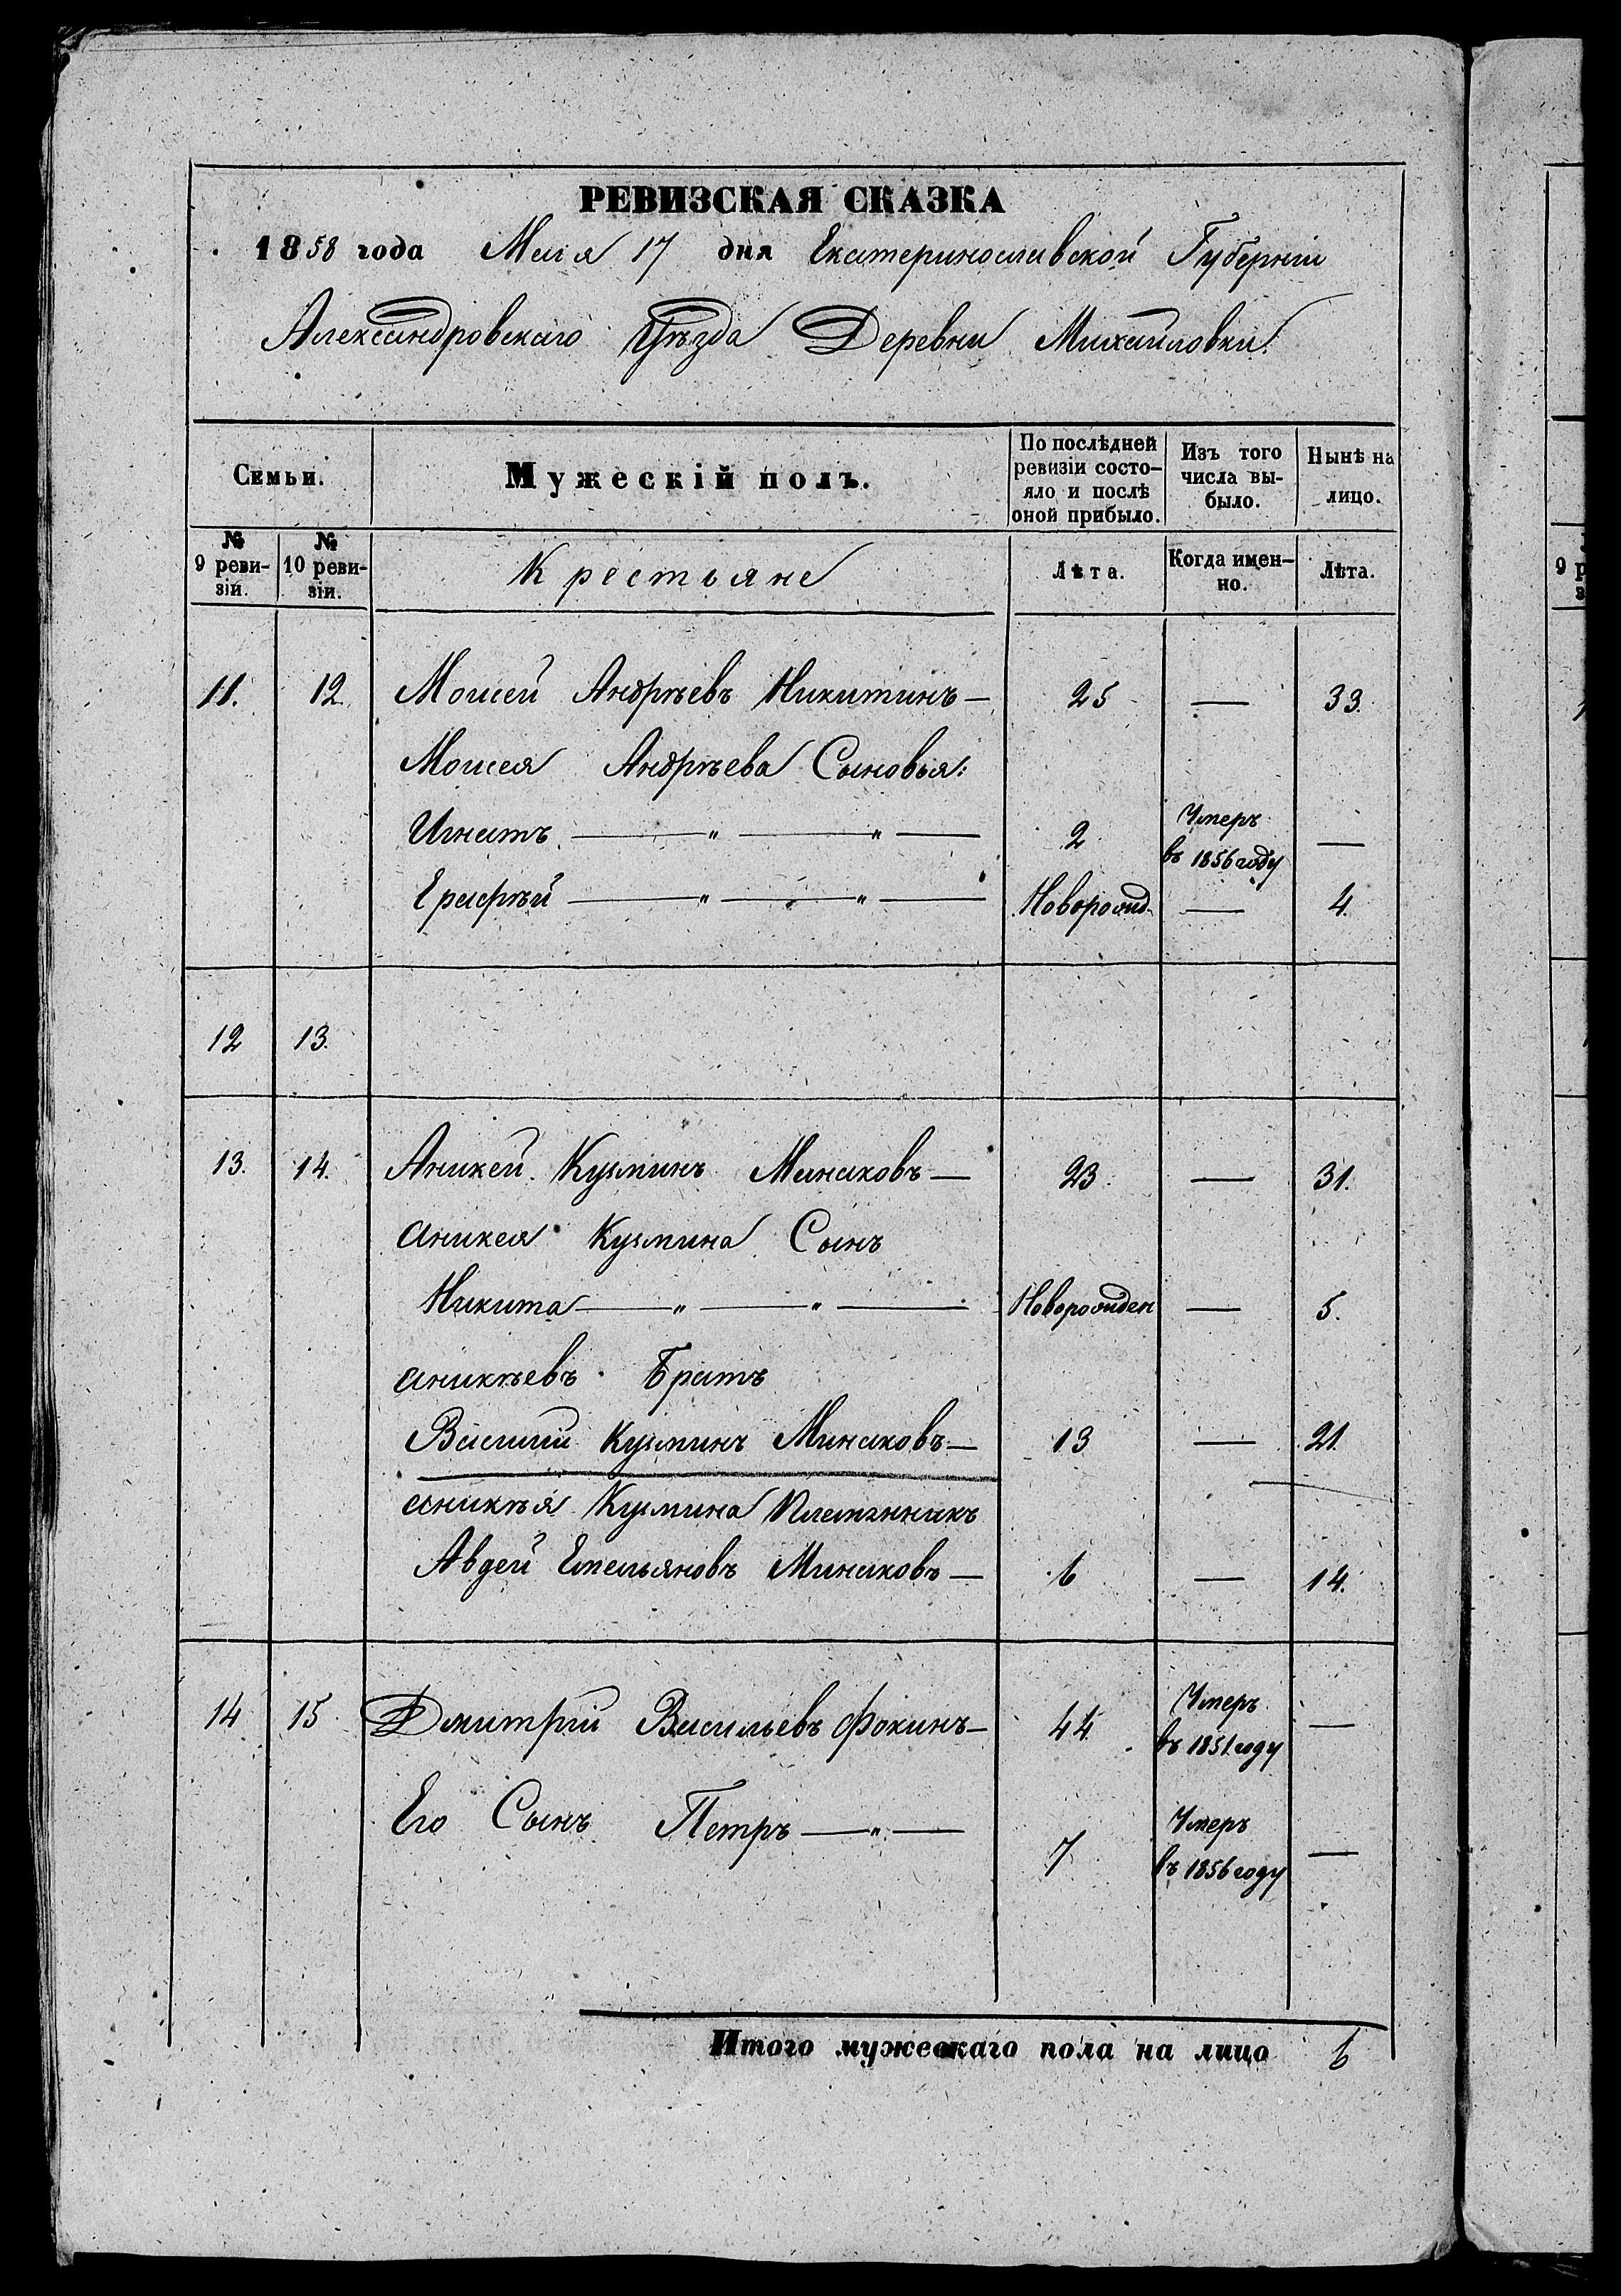 РЕВИЗСКАЯ СКАЗКА
1858 года Маія 17 дня Екатеринославской Губерніи
Александровскаго Уѣзда Деревни Михайловки.
Семьи.
Мужескій полъ.
По послѣдней ревизіи состо-
яло и послѣ
оной прибыло.
Изъ того
числа вы-
было.
Нынѣ на
лицо.
№
9 реви-
зіи.
№
10 реви-
зіи.
Крестьяне
Лѣта.
Когда имен-
но.
Лѣта.
11. 12. Моисей Андрѣевъ Никитинъ — 25 — 33.
Моисея Андрѣева Сыновья:
Игнатъ — " — " — 2 Умеръ въ 1856 году —
Ерафѣй — " — " — Новорожд. — 4.
12 13.
13. 14. Аникей Кузминъ Минаковъ — 23 — 31.
Аникея Кузмина Сынъ
Никита — " — " — Новорожден — 5.
Аникѣевъ Братъ
Василій Кузминъ Минаковъ — 13 — 21.
Аникѣя Кузмина Племянникъ
Авдей Емельяновъ Минаковъ — 6 — 14.
14 15 Дмитрій Васильевъ Фокинъ — 44. Умеръ въ 1851 году —
Его Сынъ Петръ — " — 7 Умеръ въ 1856 году —
Итого мужескаго пола на лицо 6
9 р
з